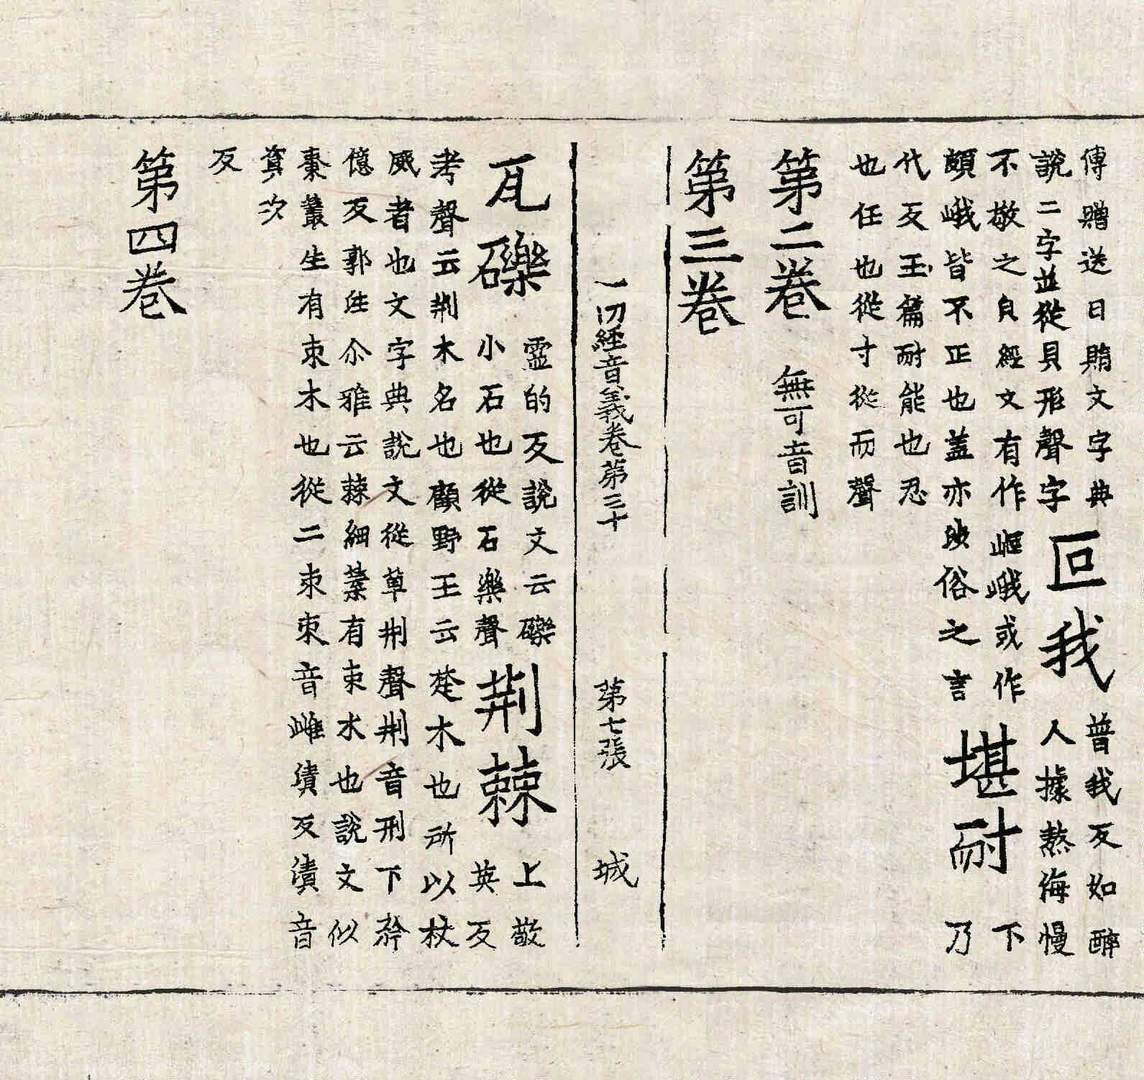 傳贈送日賵文字典
說二字並從貝形聲字
叵我
普我反如醉
人據熬侮慢
不敬之皃經文有作岠峨或作
頗峨皆不正也盖亦俗之言
堪耐
下
乃
代反玉篇耐能也忍
也任也從寸從而聲
第二卷 無可音訓
第三卷
一切經音義卷第三十 第七張 城
瓦礫
靈的反說文云礫
小石也從石樂聲
荆棘
上敬
英反
考聲云荆木名也顧野王云楚木也所以杖
威者也文字典說文從草刑聲荆音刑下矜
億反郭注尒雅云棘細葉有朿木也說文似
棗叢生有朿木也從二朿朿音雌漬反漬音
次
反
第四卷